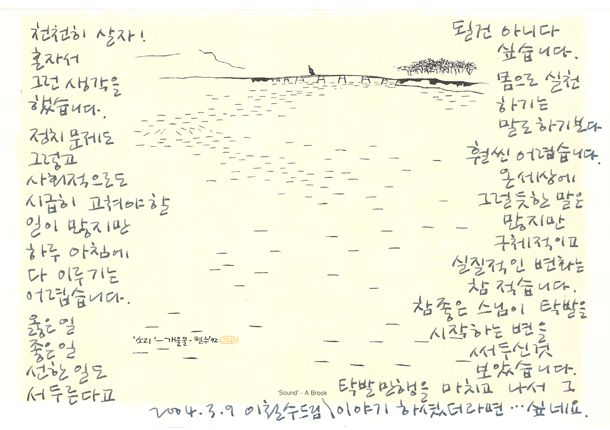 천천히 살자!
혼자서
그런 생각을
했습니다.
정치 문제도
그렇고
사회적으로도
시급히 고쳐야 할
일이 많지만
하루 아침에
다 이루기는
어렵습니다.
옳은 일
좋은 일
선한 일도
서두른다고
될건 아니다
싶습니다.
몸으로 실천
하기는
말로 하기보다
훨씬 어렵습니다.
온 세상에
그럴듯한 말은
많지만
구체적이고
실질적인 변화는
참 적습니다.
참 좋은 스님이 탁발을
시작하는 변을
써두신 것
보았습니다.
탁발만행을 마치고 나서 그
이야기 하셨더라면 … 싶네요.
2004.3.9 이철수드림
'소리' - 개울물 · 철수92
'Sound' - A Brook